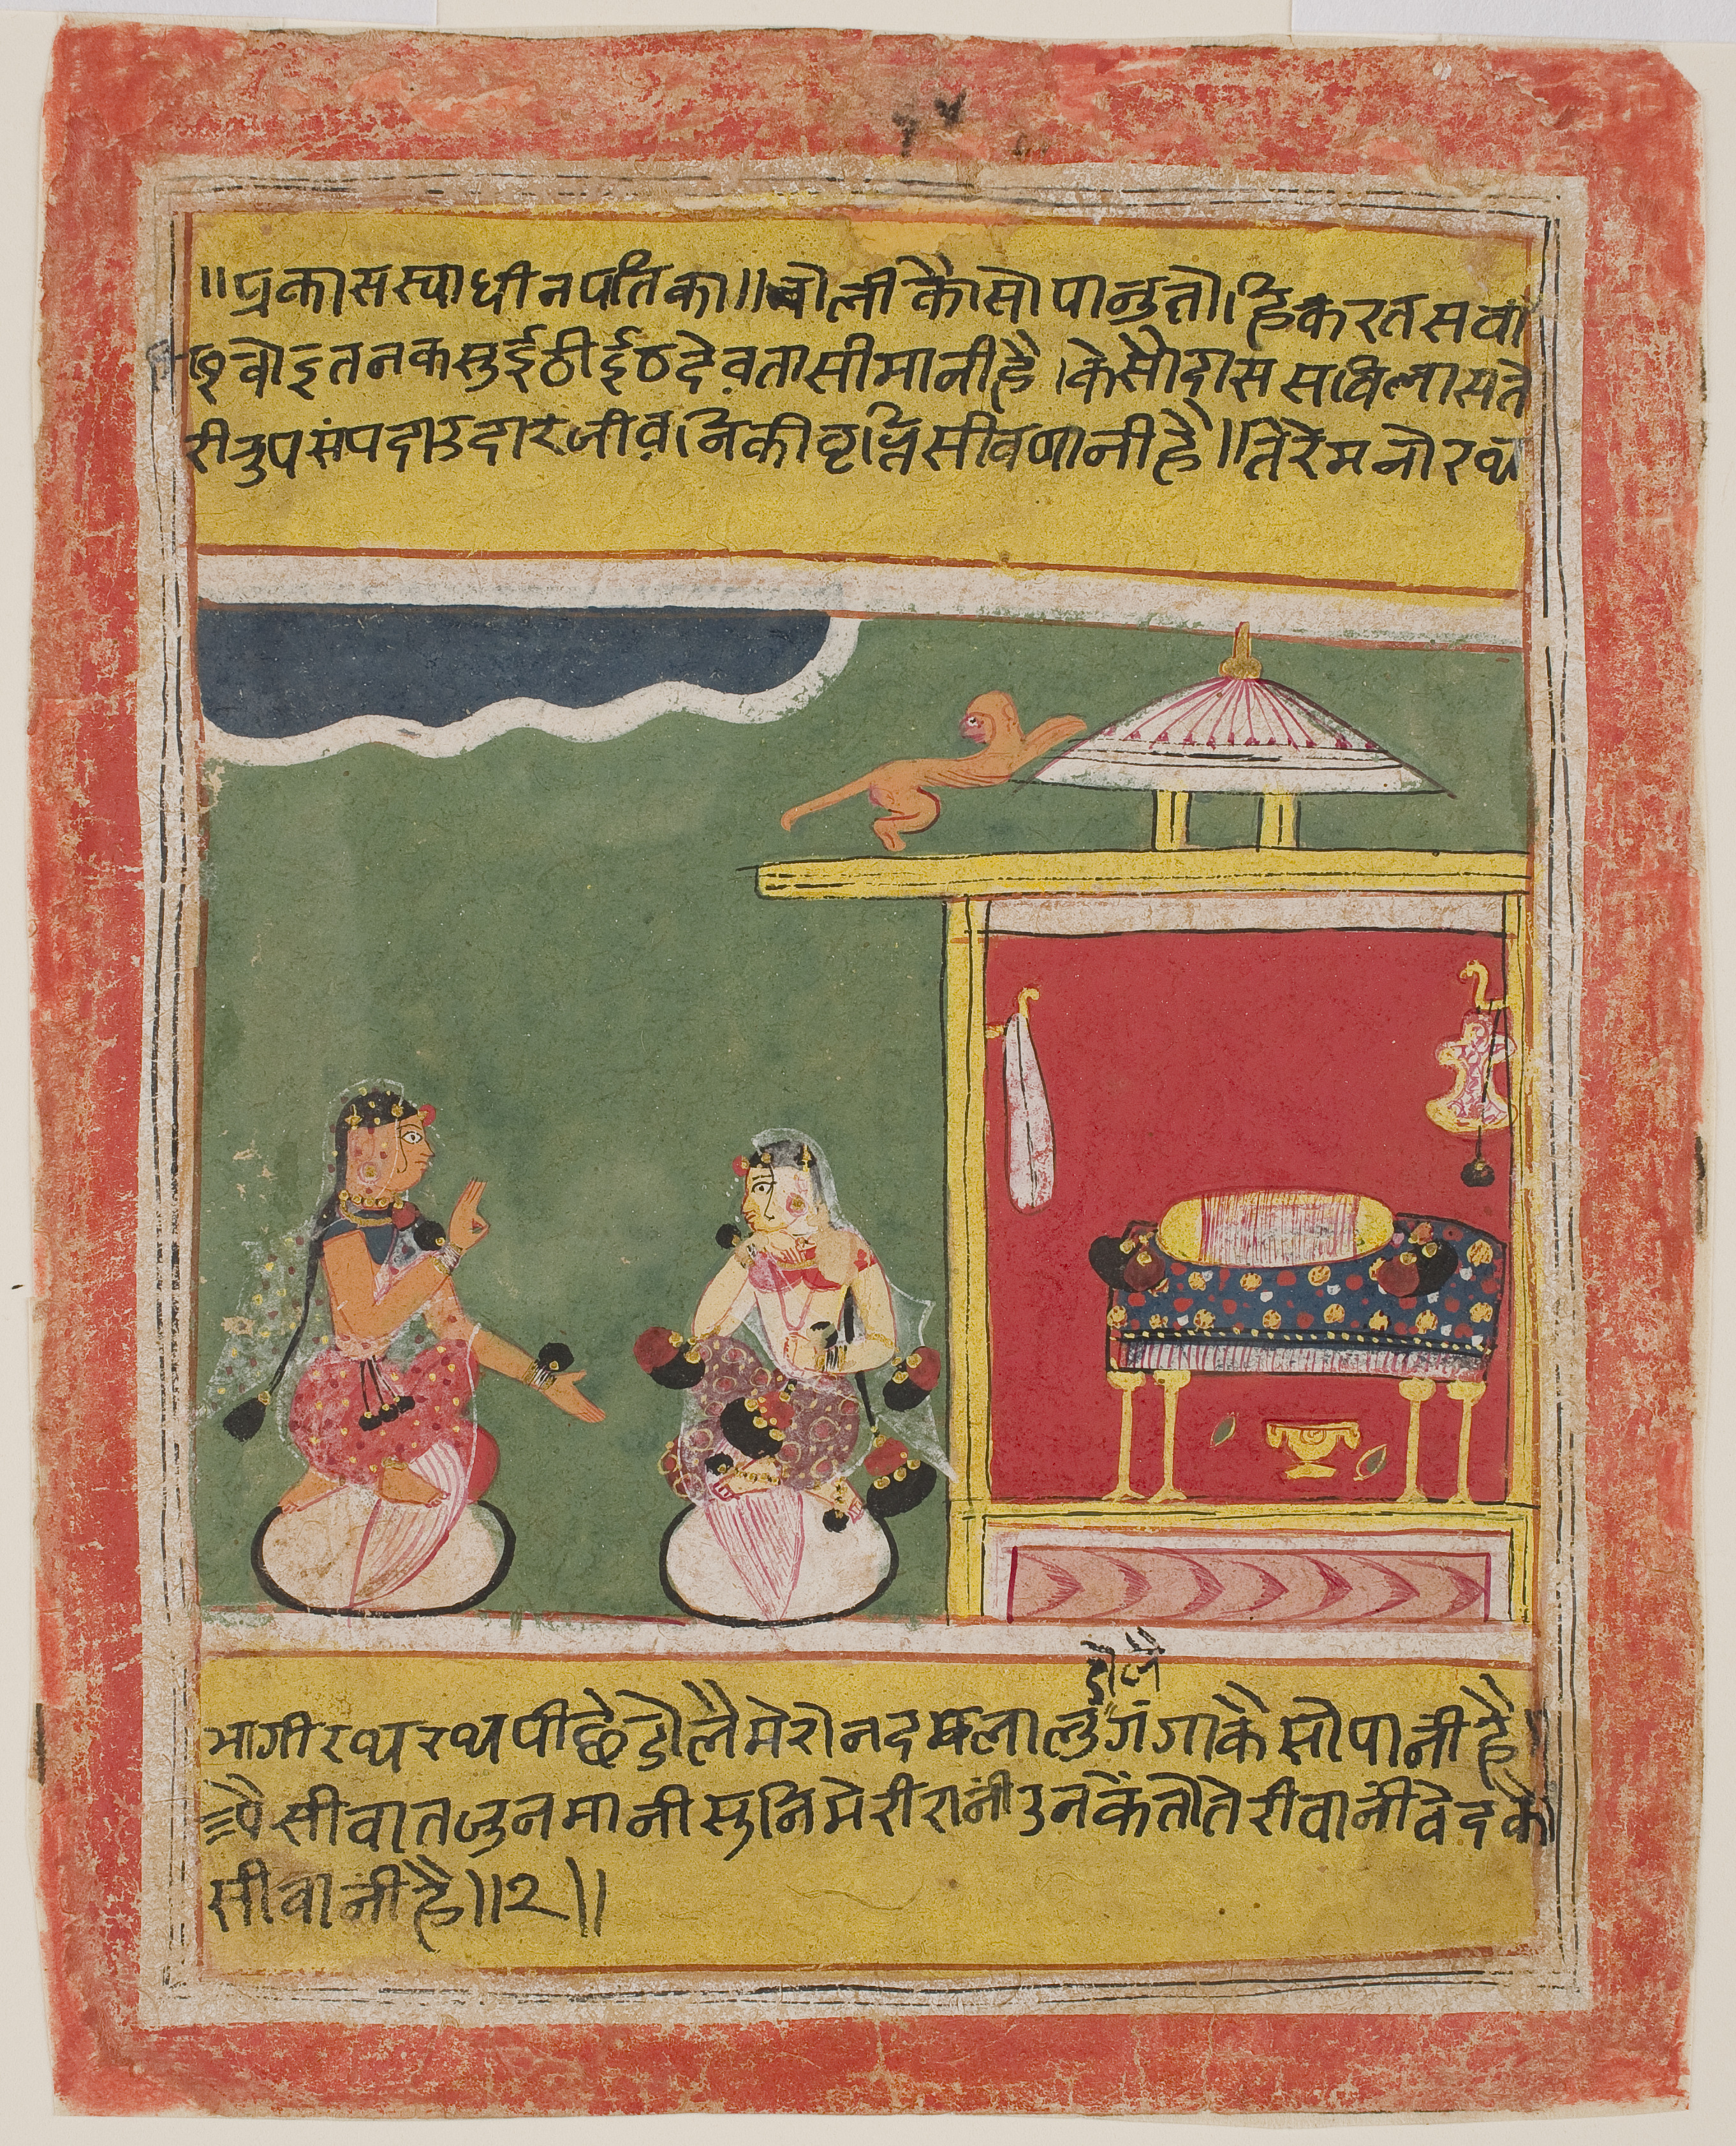 ॥प्रकास स्वाधीन पतिका॥ चोली कैसो पानु तोहि करत सवा
वोइ तनक सुई ठी ईठ देवता सी मानी है।केसौदास सविलास ते
री रुप संपदा उदार जीवनि की वृत्ति सी वषानी है॥तेरे मनोरथ
डोलै
भागीरथ रथ पीछे डोलै मेरो नद लालु गंगा कैसो पानी है॥
ऐसी वात जु न मानी सुनि मेरी रानी उनकें तो तेरी वानी वेद की
सी वानी है॥२॥